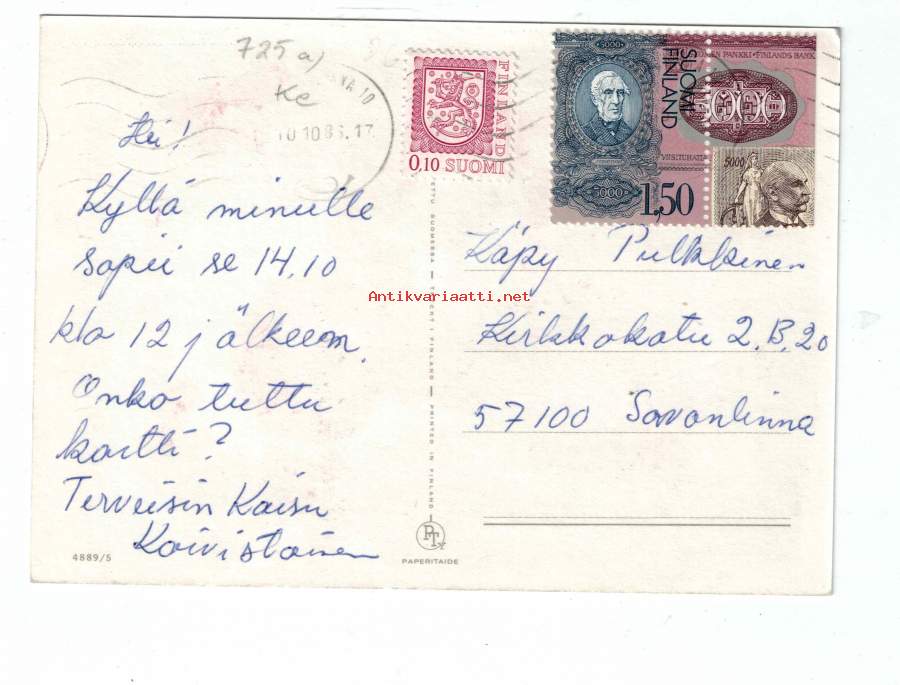 725 a)
Ke
10
10.10.86.17
Hei!
Kyllä minulle
sopii se 14.10
klo 12 jälkeen.
Onko tuttu
kortti?
Terveisin Kaisu
Koivistoinen
FINLAND
0,10 SUOMI
5000
SUOMI
FINLAND
VIISITUHATTA
5000
1,50
EN PANKKI • FINLANDS BANK
5000
5000
Käpy Pulkkinen
Kirkkokatu 2.B.20
57100 Savonlinna
Antikvariaatti.net
SUOMESSA — TRYCKT I FINLAND — PRINTED IN FINLAND
PTy
PAPERITAIDE
4889/5